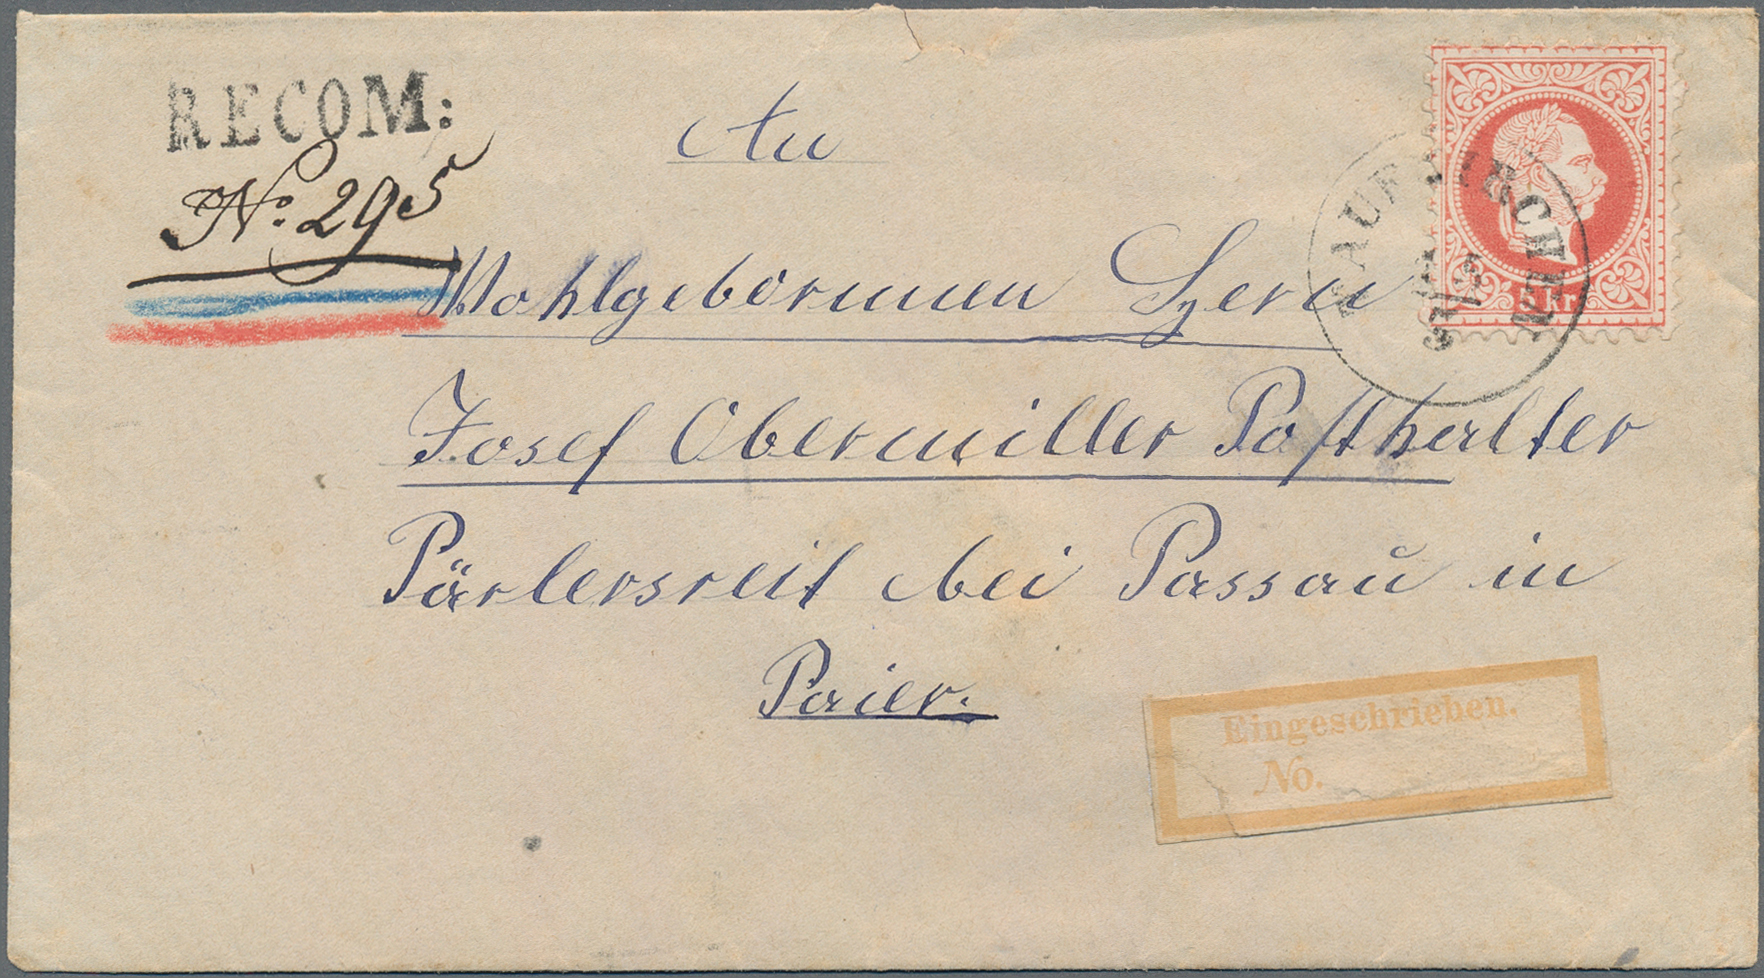 RECOM:
No. 295
An
Wohlgebornnen Herrn
Josef Obermiller Posthalter
Pärlersreit bei Passaŭ in
Paier.
TAUFKIRCHEN
5 kr
Eingeschrieben.
No.